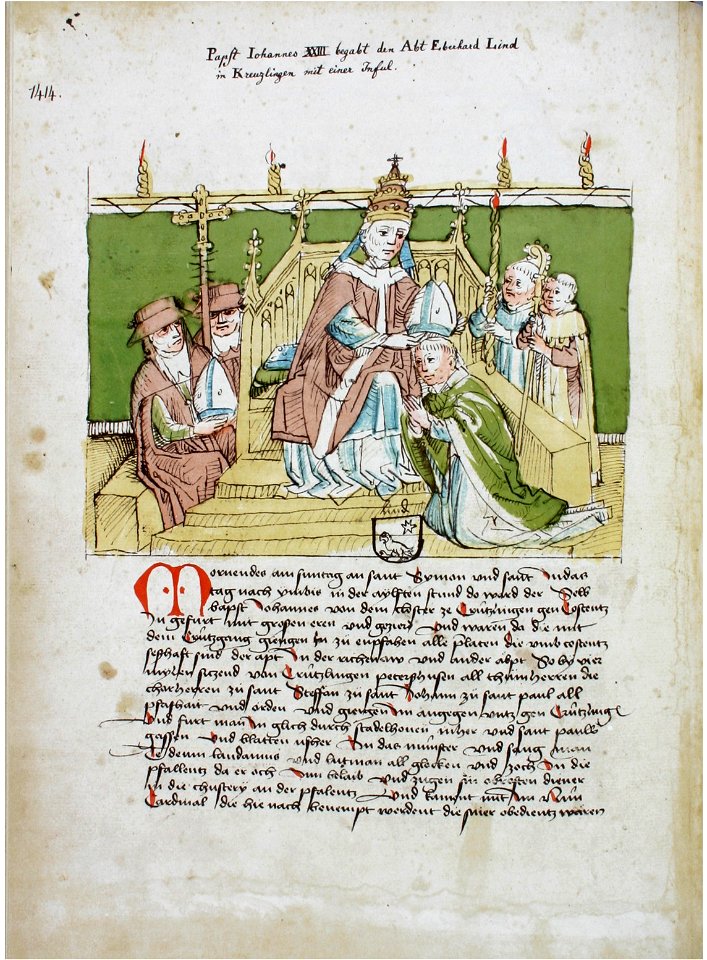 Papst Iohannes XXIII begabt den Abt Eberhard Lind
in Kreuzlingen mit einer Inful.
1414.
lind
Mornendes am suntag an sant Symon und sant Judas
tag nach ymbis in der aylften stund do ward der selb
bapst Johannes von dem closter ze Crützlingen gen Costentz
In gefürt mit grossen eren und gezierd und waren da die mit
dem Crützgang giengen Im zü empfahen alle pfaten die umb costentz
seßhaft sind der apt In der richenaw und ander äpt So by vier
mylen sitzend von Crützlingen petershusen all thümherren die
chorherren zü sant Steffan zü sant Johann zü sant paul all
pfafhait und orden und giengen Im engegen untz gen Crützlingen
Und fürt man In glich durch stadelhouen inher und sant pauls
gassen und blatten usher In das münster und sang man
Te deum laudamus und lutman all gloken und zoch In die
pfallentz da er och Inn belaib und zugen zü obresten diener
in die chustery an der pfalentz Und kament mit Im nün
Cardinal die hie nach benempt werdent die siner obedientz waren